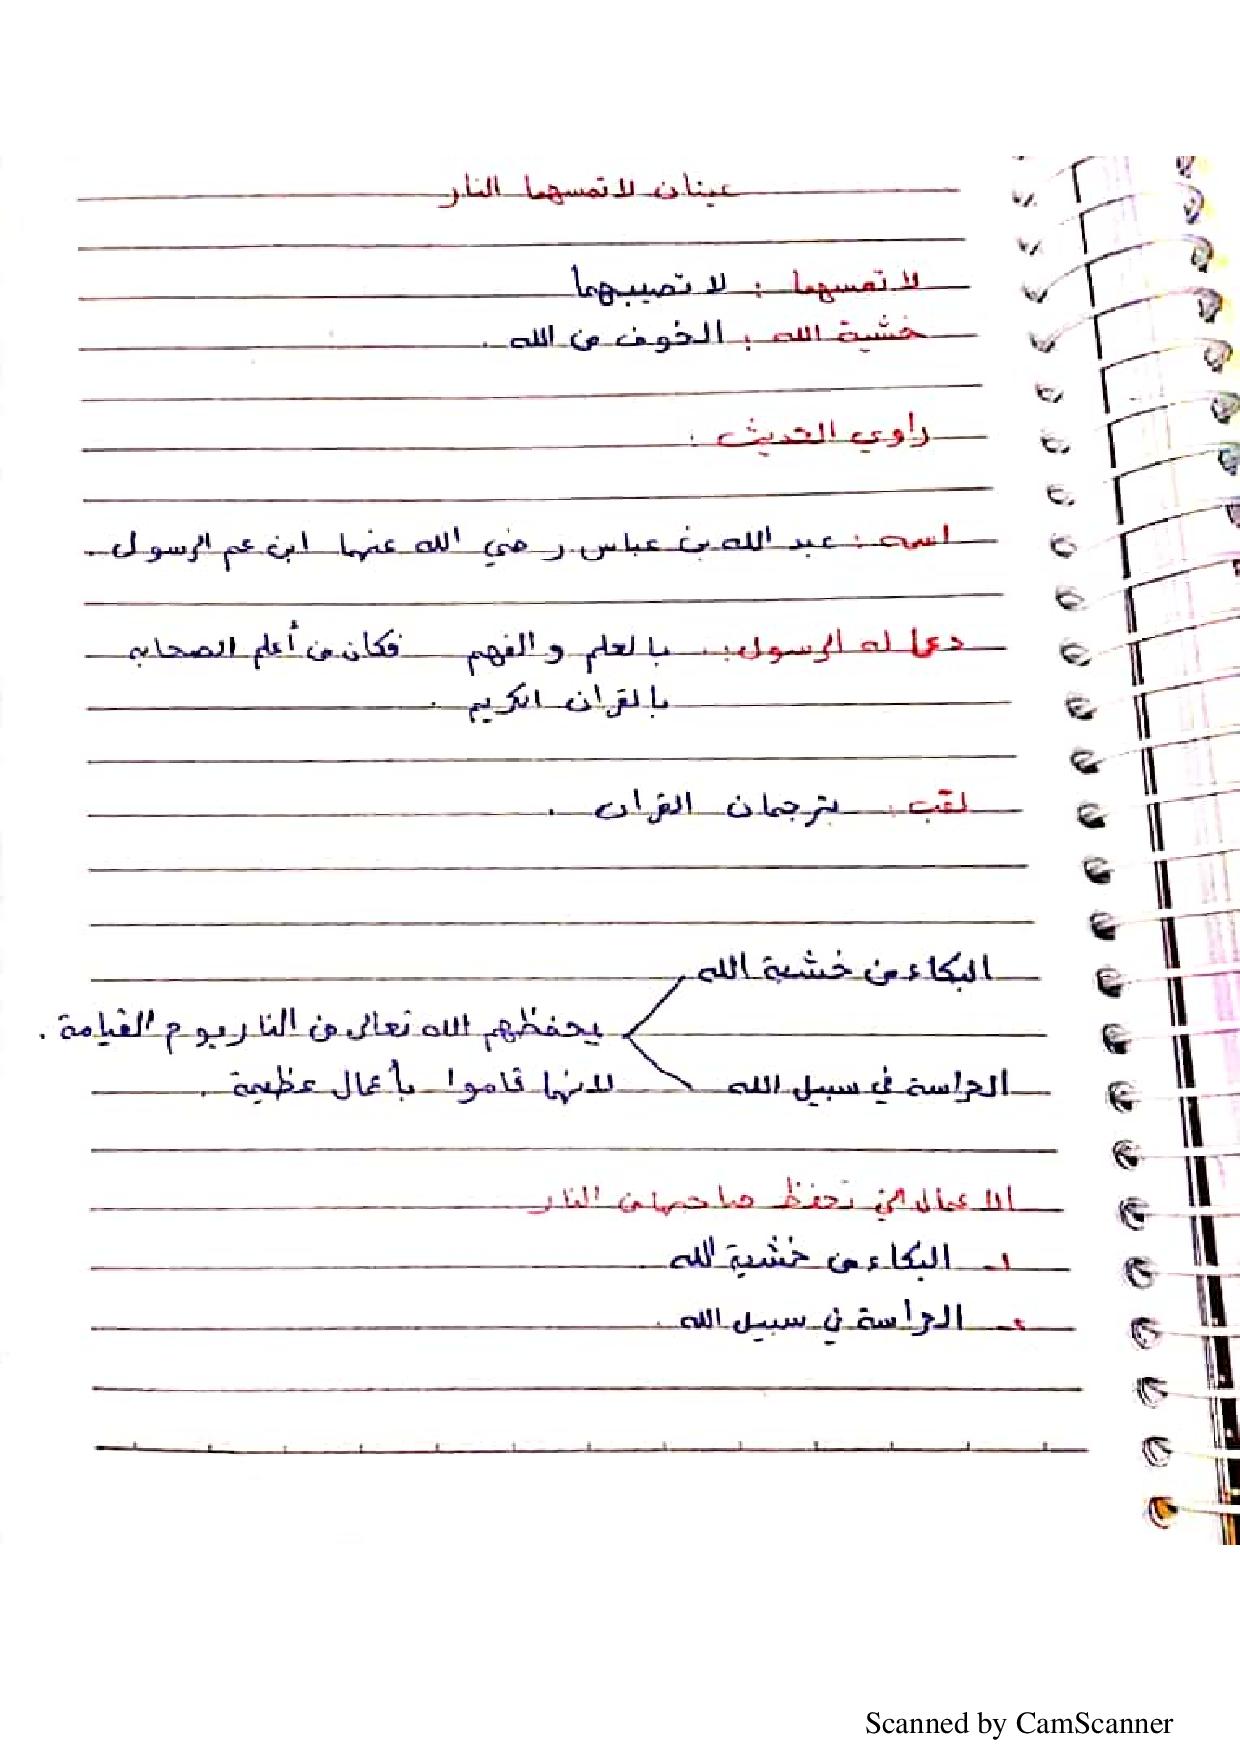 عينان لا تمسهما النار
لا تمسهما : لا تصيبهما
خشية الله : الخوف من الله .
راوي الحديث :
اسمه : عبد الله بن عباس رضي الله عنهما ابن عم الرسول .
دعا له الرسول : بالعلم والفهم فكان من أعلم الصحابه
بالقران الكريم .
لقب : بترجمان القران .
البكاء من خشية الله
يحفظهم الله تعالى من النار يوم القيامة .
الحراسة في سبيل الله لانهما قاموا بأعمال عظيمة .
الاعمال التي تحفظ صاحبها من النار
١ـ البكاء من خشية الله
٢ـ الحراسة في سبيل الله .
Scanned by CamScanner